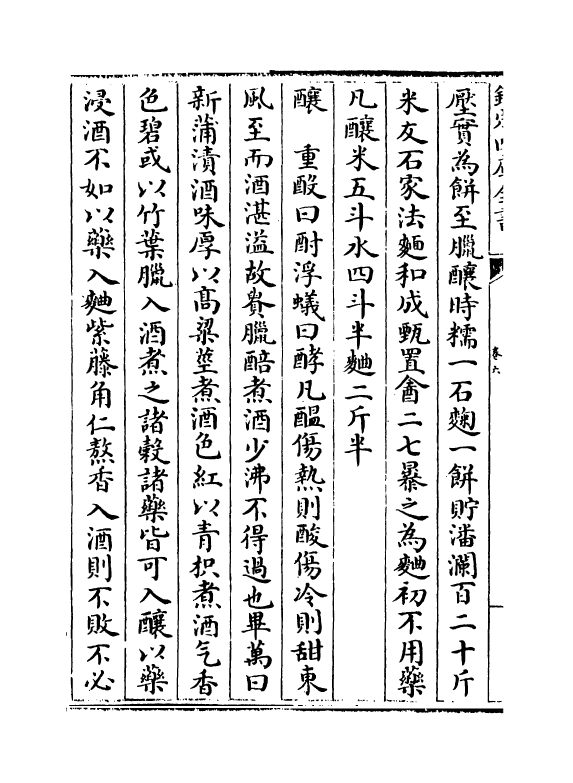 欽定四庫全書
卷六
壓實為餅至臘釀時糯一石麴一餅貯潘瀾百二十斤
米友石家法麵和成甄置畬二七暴之為麯初不用藥
凡釀米五斗水四斗半麯二斤半
釀　重酘曰酎浮蟻曰酵凡醖傷熱則酸傷冷則甜東
風至而酒湛溢故貴臘醅煮酒少沸不得過也畢萬曰
新蒲漬酒味厚以高粱莖煮酒色紅以青枳煮酒气香
色碧或以竹葉臘入酒煮之諸穀諸藥皆可入釀以藥
浸酒不如以藥入麯紫藤角仁熬香入酒則不敗不必